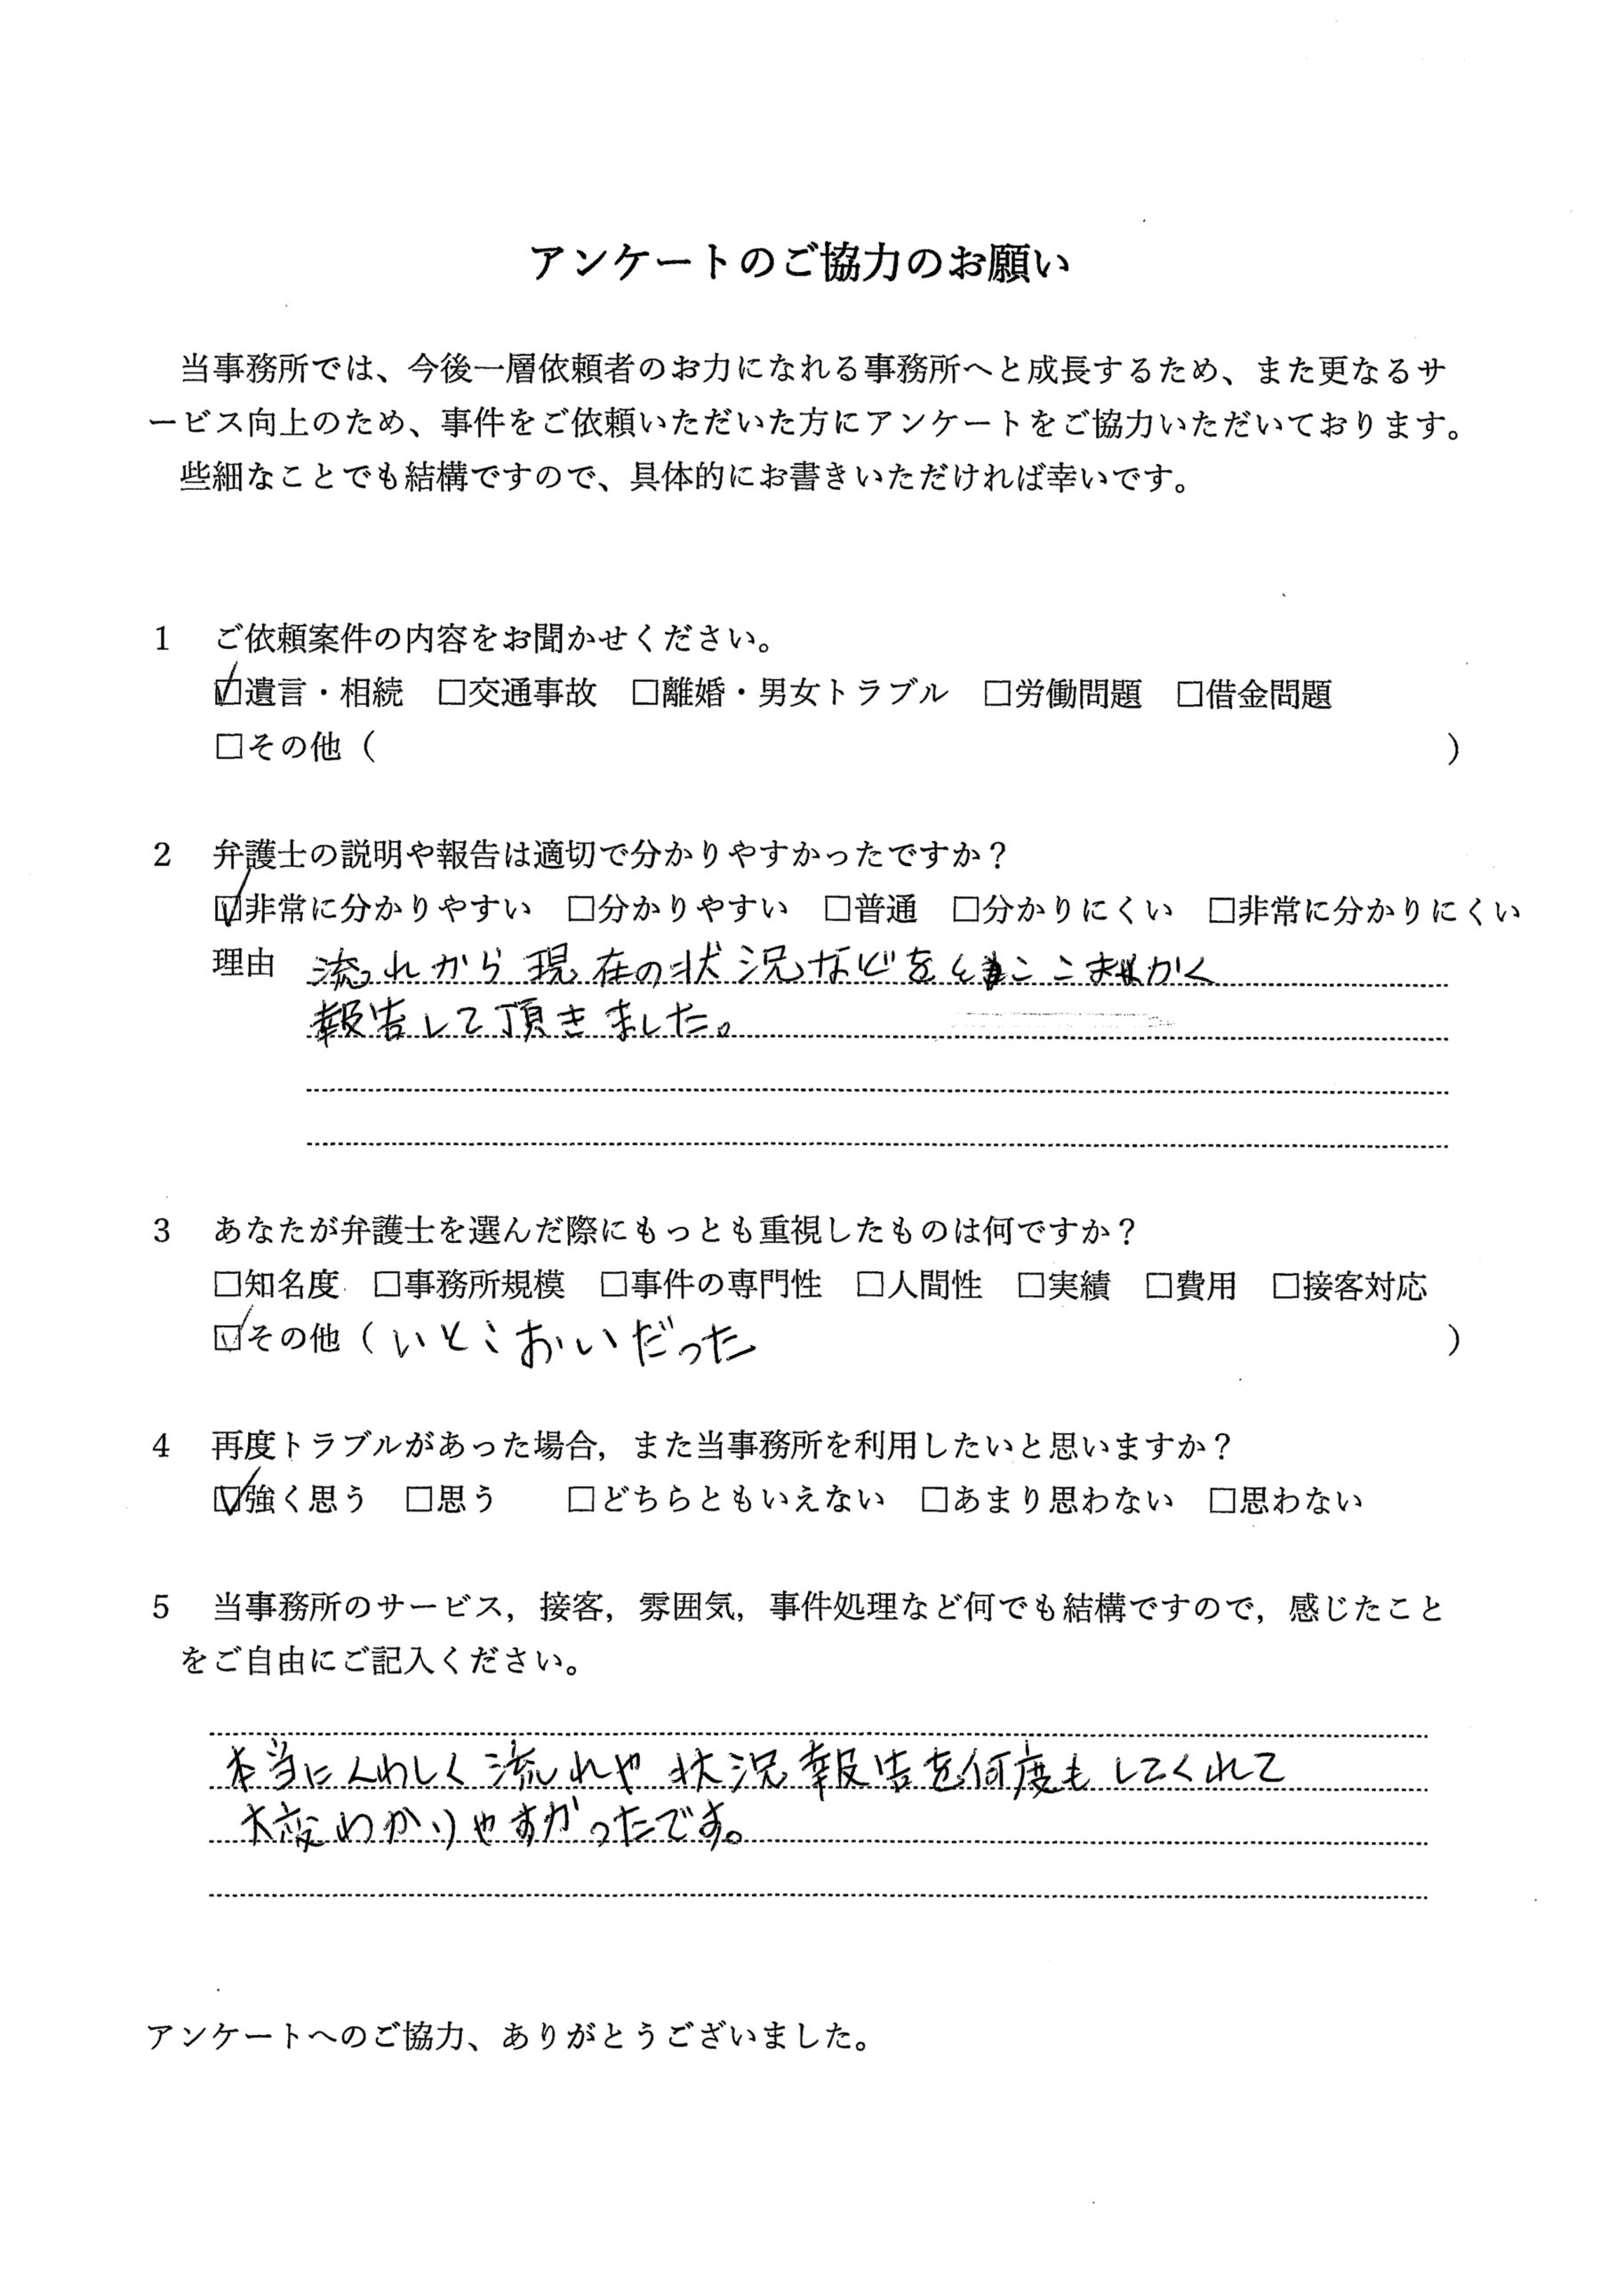 アンケートのご協力のお願い
当事務所では、今後一層依頼者のお力になれる事務所へと成長するため、また更なるサ
ービス向上のため、事件をご依頼いただいた方にアンケートをご協力いただいております。
些細なことでも結構ですので、具体的にお書きいただければ幸いです。
1 ご依頼案件の内容をお聞かせください。
☑遺言・相続 □交通事故 □離婚・男女トラブル □労働問題 □借金問題
□その他（ ）
2 弁護士の説明や報告は適切で分かりやすかったですか？
☑非常に分かりやすい □分かりやすい □普通 □分かりにくい □非常に分かりにくい
理由 流れから現在の状況などを こまかく
報告して頂きました。
3 あなたが弁護士を選んだ際にもっとも重視したものは何ですか？
□知名度 □事務所規模 □事件の専門性 □人間性 □実績 □費用 □接客対応
☑その他（いとこおいだった ）
4 再度トラブルがあった場合，また当事務所を利用したいと思いますか？
☑強く思う □思う □どちらともいえない □あまり思わない □思わない
5 当事務所のサービス，接客，雰囲気，事件処理など何でも結構ですので，感じたこと
をご自由にご記入ください。
本当にくわしく流れや状況報告を何度もしてくれて
大変わかりやすかったです。
アンケートへのご協力、ありがとうございました。